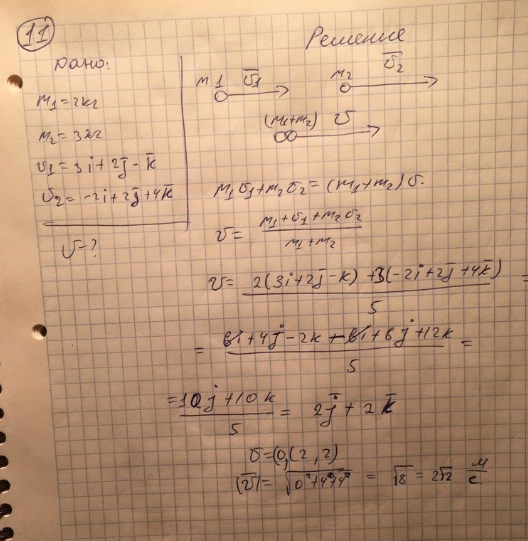 11
Дано:
m₁=2кг
m₂=3кг
v₁=3i+2j̄-k̄
v₂=-2i+2j̄+4k̄
v-?
Решение
m1 v̄1
m₂ v̄₂
(m₁+m₂) v̄
m₁v₁+m₂v₂=(m₁+m₂)v.
v= (m₁+v₁+m₂v₂)/(m₁+m₂)
v= (2(3i+2j-k)+3(-2i+2j̄+4k̄))/5 =
= (6i+4j-2k-6i+6j+12k)/5 =
= (10j+10k)/5 = 2j̄+2k̄
v=(0,(2,2)
|v̄|= √(0²+4²+4²) = √8 = 2√2 м/с